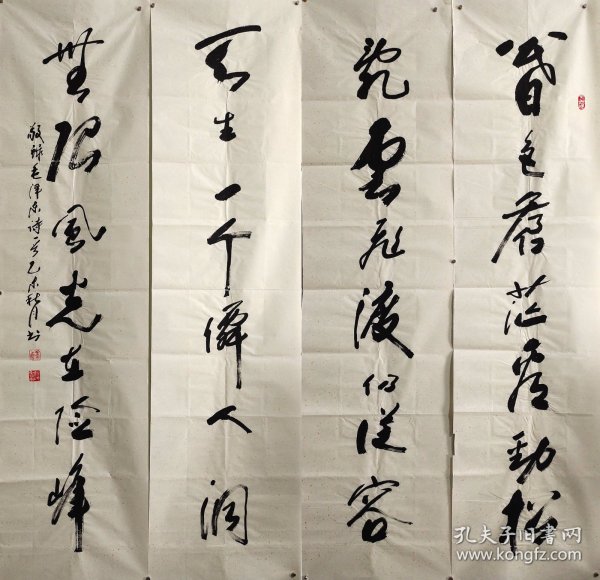 暮色苍茫看劲松
乱云飞渡仍从容
天生一个仙人洞
无限风光在险峰
敬录毛泽东诗一首乙未秋月书
孔夫子旧书网
www.kongfz.com